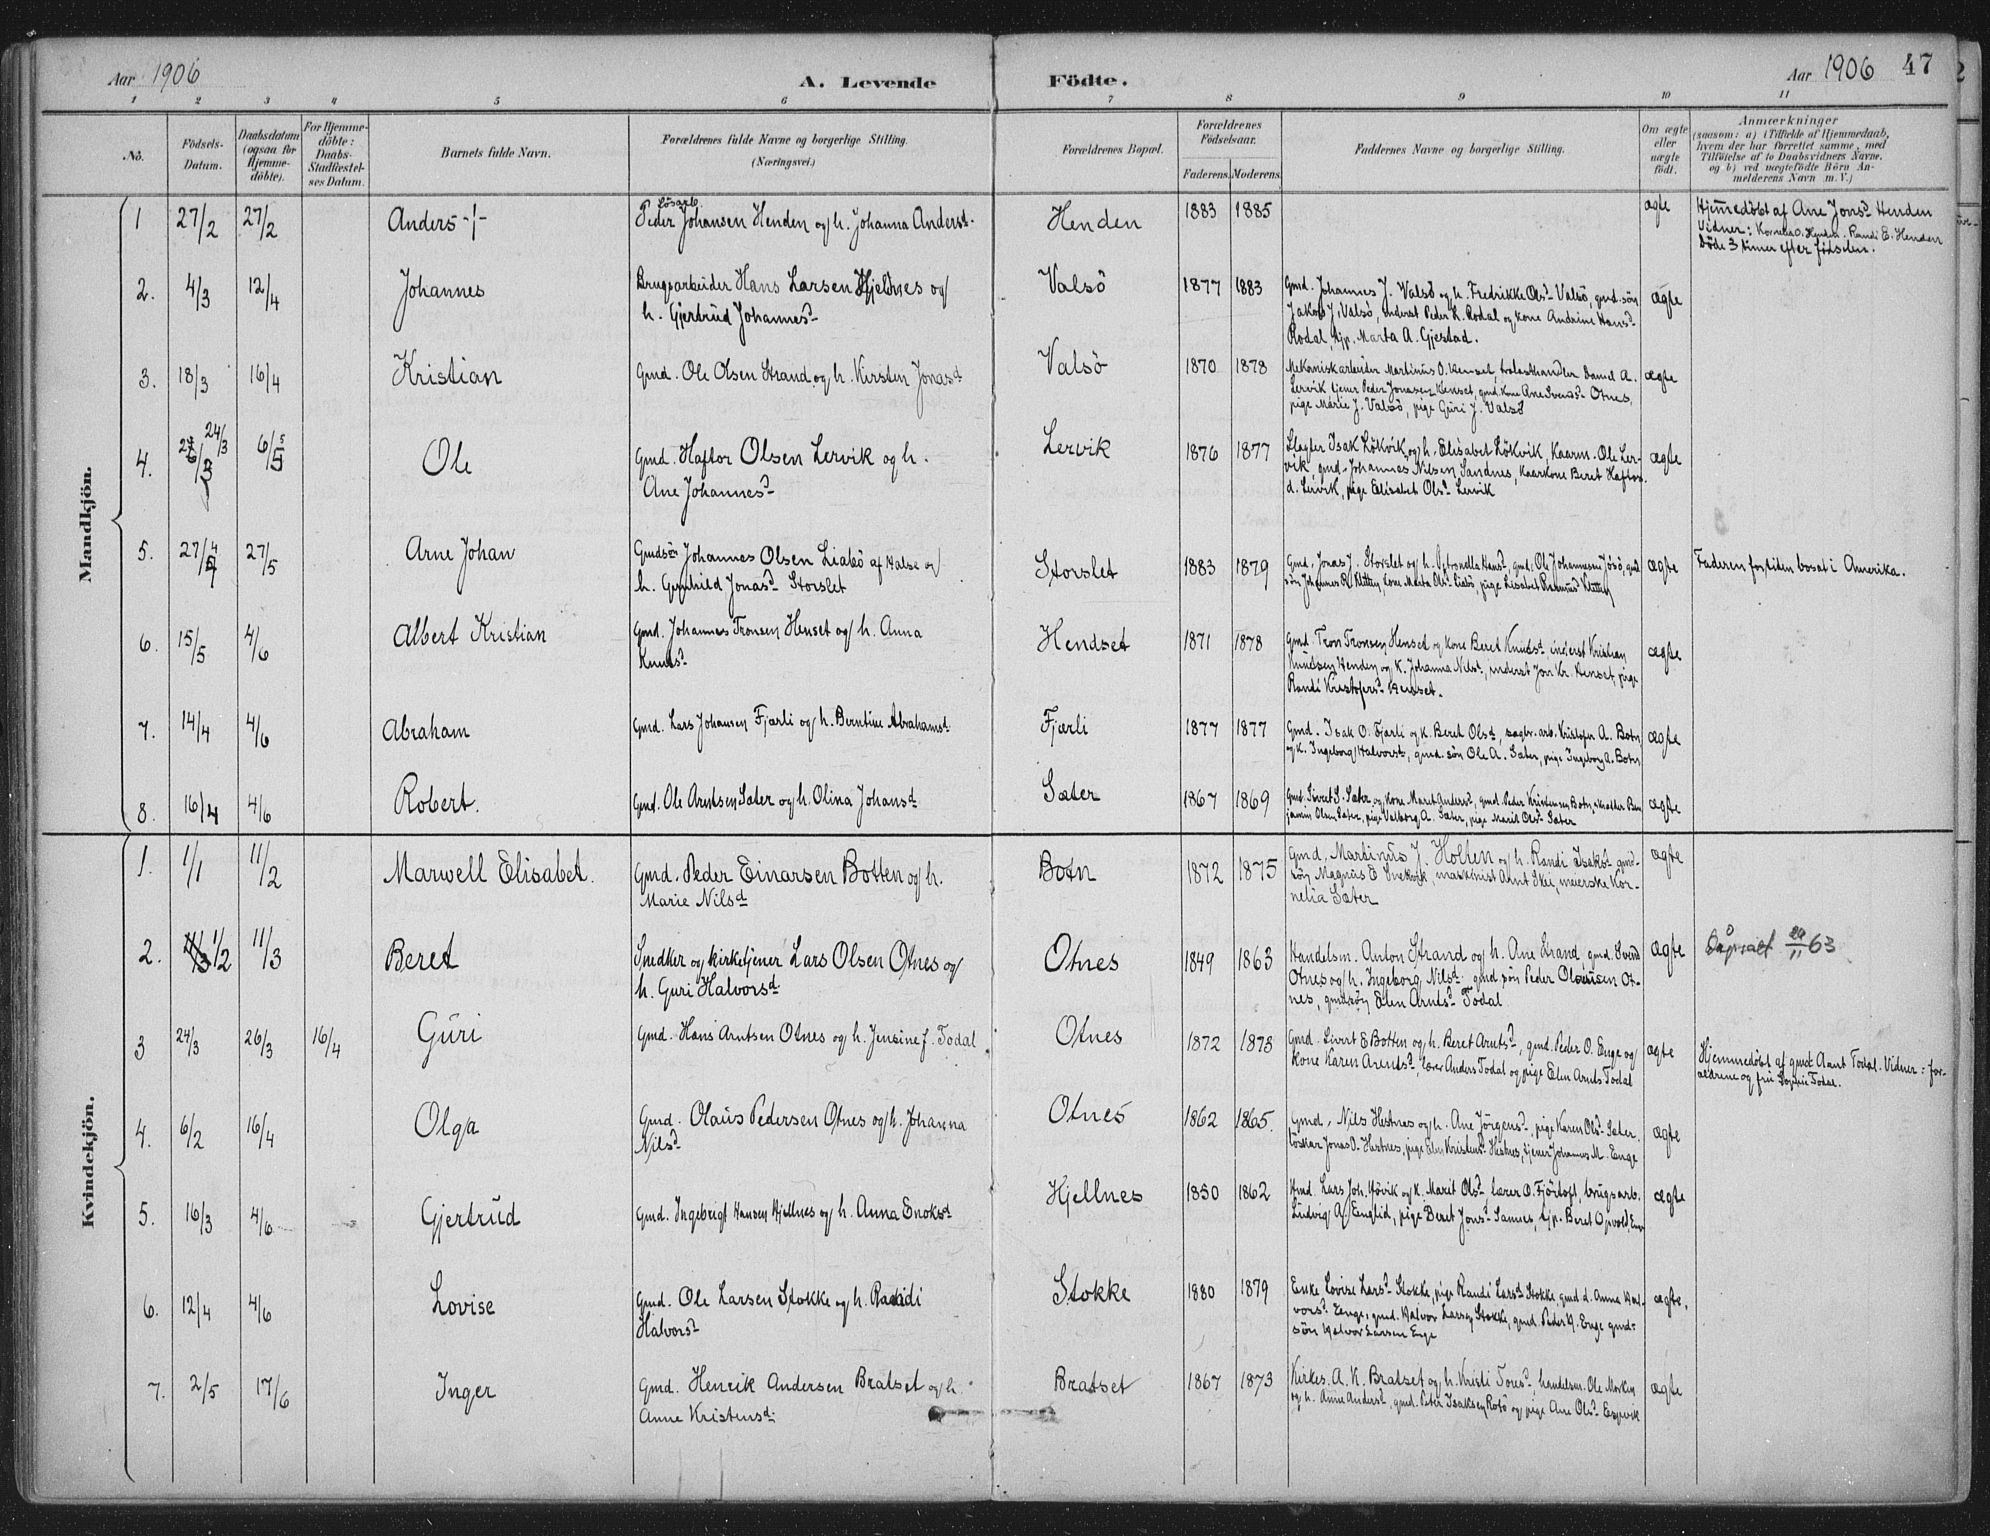 Aar 1906
A. Levende
Födte.
Aar 1906
47
1 2 3 4 5 6 7 8 9 10 11
No.
Födsels-
Datum.
Daabsdatum
(ogsaa for
Hjemme-
döbte).
For Hjemme-
döbte:
Daabs-
Stadfæstel-
ses Datum.
Barnets fulde Navn.
Forældrenes fulde Navne og borgerlige Stilling.
(Næringsvei.)
Forældrenes Bopæl.
Forældrenes
Födselsaar.
Faderens.
Moderens.
Faddernes Navne og borgerlige Stilling.
Om ægte
eller
uægte
födt.
Anmærkninger
(saasom: a) i Tilfælde af Hjemmedaab,
hvem der har forrettet samme, med
Tilföielse af to Daabsvidners Navne.
og b) ved uægtefödte Börn An-
melderens Navn m. V.)
Mandkjön.
1 27/2 27/2 Anders -|-
Lösarb.
Peder Johansen Henden og h. Johanna Andersd.
Henden 1883 1885 ægte
Hjemmedöbt af Ane Jonsd. Henden
Vidner: Kornelia O. Henden. Randi E. Henden
Döde 3 timer efter födselen.
2. 4/3 12/4 Johannes
Brugsarbeider Hans Larsen Hjelnes og
h. Gjertrud Johannesd.
Valsö 1877 1883
Gmd. Johannes J. Valsö og h. Fredrikke Olsd. Valsö, gmd. sön
Jakob J. Valsö, inderst Peder K. Rodal og kone Andrine Hansd.
Rodal, tjp. Marta A. Gjestad.
ægte
3. 18/3 16/4 Kristian
Gmd. Ole Olsen Strand og h. Kirsten Jonasd.
Valsö 1870 1878
Mekaniskarbeider Martinus O. Henset, Daniel A.
Lervik tjener Peder Jonasen Henset, gmd. kone Ane Svendsd. Otnes,
pige Marie J. Valsö, pige Guri J. Valsö
ægte
4. 24/3 6/5 Ole
Gmd. Haftor Olsen Lervik og h.
Ane Johannesd.
Lervik 1876 1877
Slagter Isak Lökvik og h. Elisabet Lökvik, Kaarm. Ole Ler-
vik gmd. Johannes Nilsen Sandnes, Kaarkone Beret Haftor-
d. Lervik, pige Elisabet Olsd. Lervik
ægte
5. 27/4 27/5 Arne Johan
Gmdsön Johannes Olsen Liabö af Halse og
h. Jonasd. Storslet
Storslet 1883 1879
Gmd. Jonas J. Storslet og h. Petronella Hansd., gmd. Ole Johannesen Jösö, gmd
sön Johannes R. Kletten, kone Marta Olsd. Liabö, pige Lisabet Rasmusd. Kletten
ægte
Faderen fortiden bosat i Amerika.
6. 15/5 4/6 Albert Kristian
Gmd. Johannes Tronsen Henset og h. Anna
Knutsd.
Hendset 1871 1878
Gmd Tron Tronsen Henset og kone Beret Knutsd. inderst Kristian
Knudsen Henden og K. Johanna Nilsd., inderst Jon Kr. Henset, pige
Randi Kristofersd. Henset.
ægte
7. 14/4 4/6 Abraham
Gmd. Lars Johansen Fjærli og h. Berntine Abrahamsd.
Fjærli 1877 1877
Gmd. Isak O. Fjærli og K. Beret Olsd, sagbr. arb. Kristofer A. Botn
og K. Ingeborg Halvorsd., gmd. sön Ole A. Sæter, pige Ingeborg A. Botn
ægte
8. 16/4 4/6 Robert.
Gmd. Ole Arntsen Sæter og h. Olina Johansd.
Sæter 1867 1869
Gmd. Sivert S. Sæter og kone Maret Andersd., gmd. Peder Kristensen Botn, Ben
jamin Olsen Sæter, pige Valborg A. Sæter, pige Marit Olsd. Sæter
ægte
Kvindekjön.
1. 1/1 11/2 Marwell Elisabet.
Gmd. Peder Einarsen Botten og h.
Marie Nilsd
Botn 1872 1875
Gmd. Martinus J. Holten og h. Randi Isaksd. gmd-
sön Magnus E Snekvik, maskinist Arnt Skei, meierske Kor-
nelia Sæter
ægte
2. 1/2 11/3 Beret
Snedker og kirketjener Lars Olsen Otnes og
h. Guri Halvorsd.
Otnes 1849 1863
Handelsm. Anton Strand og h. Ane Strand, gmd. Svend
Otnes og h. Ingeborg Nilsd. gmd. sön Peder Olausen Ot-
nes, gmdsön Elen Arntsd. Todal
ægte
Dåpsatt 20/11 63
3 24/3 26/3 16/4 Guri
Gmd. Hans Arntsen Otnes og h. Jensine f. Todal
Otnes 1872 1873
Gmd. Sivert E Botten og h. Beret Arntsd., gmd. Peder O. Enge og
kone Karen Arentsd., lærer Anders Todal og pige Elen Arnts Todal
ægte
Hjemmedöbt af gmd. Arnt Todal. Vidner: for-
ældrene og fru Sophie Todal.
4. 6/2 16/4 Olga
Gmd. Olaus Pedersen Otnes og h. Johanna
Nilsd.
Otnes 1862 1865.
Gmd. Nils Hestnes og h. Ane Jörgensd., pige Karen Olsd. Sæter.
löskar Jonas O. Hestnes, pige Elen Kristensd. Hestnes, tjener Johannes M. Enge
ægte
5. 16/3 4/6 Gjertrud
Gmd. Ingebrigt Hansen Hjellnes og h. Anna Enoksd
Hjellnes 1850 1862
Gmd. Lars Joh. Hövik og K. Marit Olsd., lærer O. Fjörtoft, brugsarb.
Ludvig A. Englid, pige Beret Jonsd. Sannes, tjp. Beret
ægte
6. 12/4 4/6 Lovise
Gmd. Ole Larsen Stokke og h. Randi
Halvorsd.
Stokke 1880 1879
Enke Lovise Larsd. Stokke, pige Randi Larsd. Stokke, gmd. d. Anna Hal-
vorsd. Enge, gmd. Halvor Larsen Stokke, gmd. Peder H. Enge gmd-
sön Halvor Larsen Enge
ægte.
7. 2/5 17/6 Inger
Gmd. Henrik Andersen Bratset og h.
Anne Kristensd.
Bratset 1867 1873
Kirkes. A. K. Bratset og h. Kristi Toresd., handelsm. Ole Morken
og h. Anne Andersd., gmd. Peter Isaksen Rotö og pige Ane Olsd. Espevik
ægte